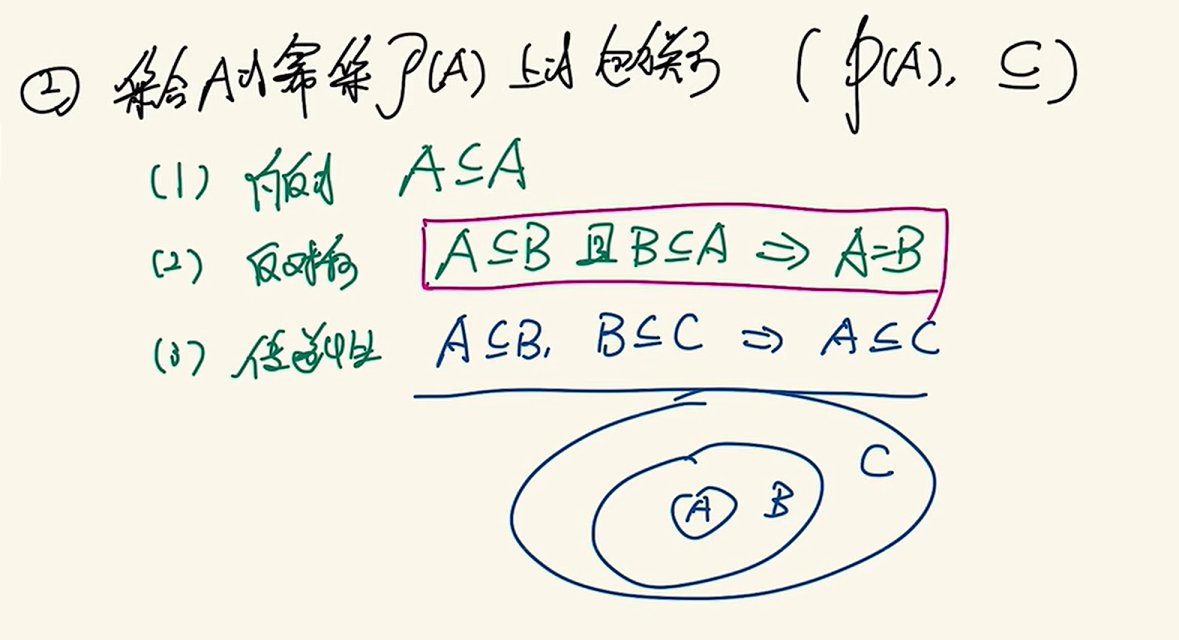 ② 集合A的幂集P(A)上的包含关系 (P(A), ⊆)
(1) 自反的 A⊆A
(2) 反对称 A⊆B 且 B⊆A ⇒ A=B
(3) 传递性 A⊆B, B⊆C ⇒ A⊆C
C
A B